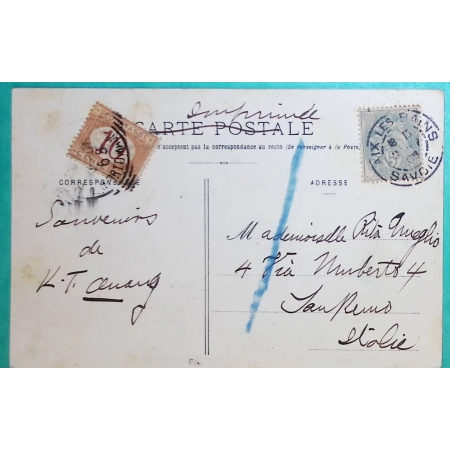 Imprimé
CARTE POSTALE
n'acceptent pas la correspondance au recto (Se renseigner à la Poste)
CORRESPONDANCE
ADRESSE
AIX-LES-BAINS
SAVOIE
Souvenirs
de
K.T.
Mademoiselle Rita
4 Via Umberto 4
San Remo
Italie